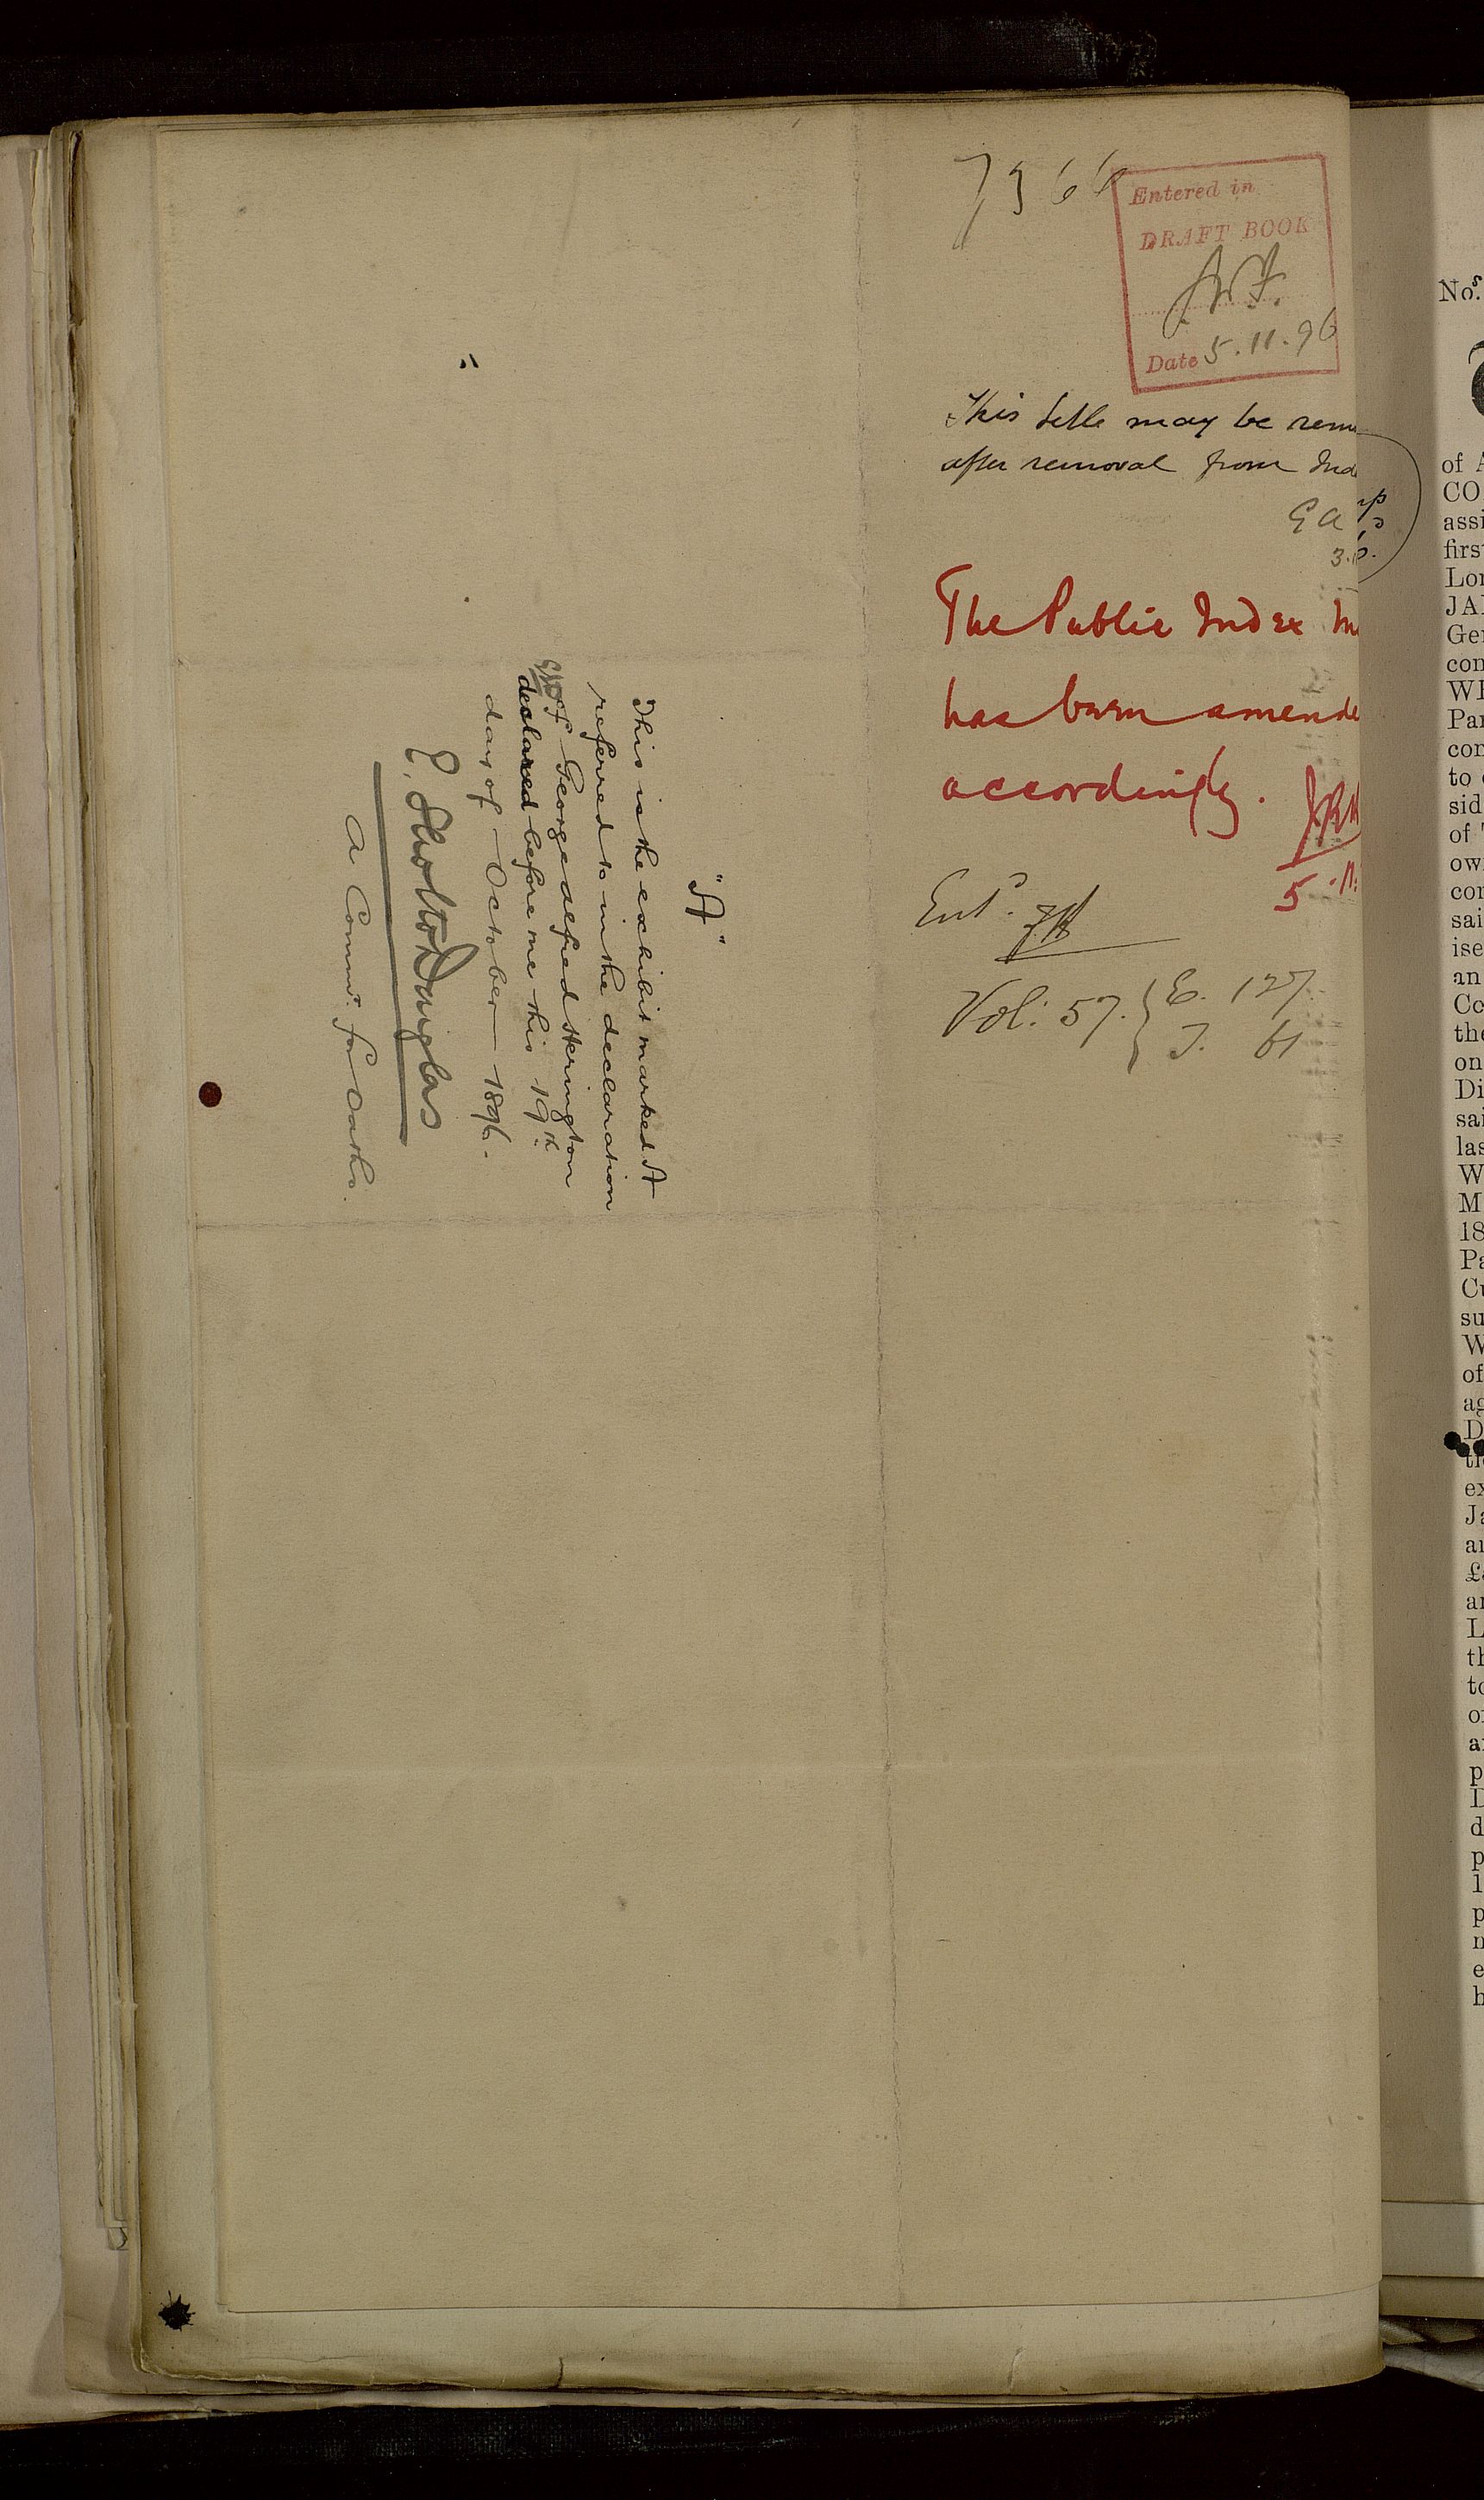 7366
Entered in
DRAFT BOOK
Date 5.11.96
This title may be
after removal from
The Public Index
has been
accordingly.
5
Entd.
Vol: 57. { E. 127
J. 61
"A"
This is the exhibit marked A
referred to in the declaration
of George Alfred Sherington
declared before me this 19th
day of October 1896.
C. Sholto Douglas
A Commr. for Oaths.
Nos.
of
CO
assi
firs
Lon
JA
Ge
con
W
Pa
con
to
sid
of
ow
con
sai
ise
an
Co
the
on
Di
sai
las
W
M
18
Pa
Cu
su
W
of
ag
D
ti
ex
Ja
an
L
th
to
p
D
d
p
1
p
e
h